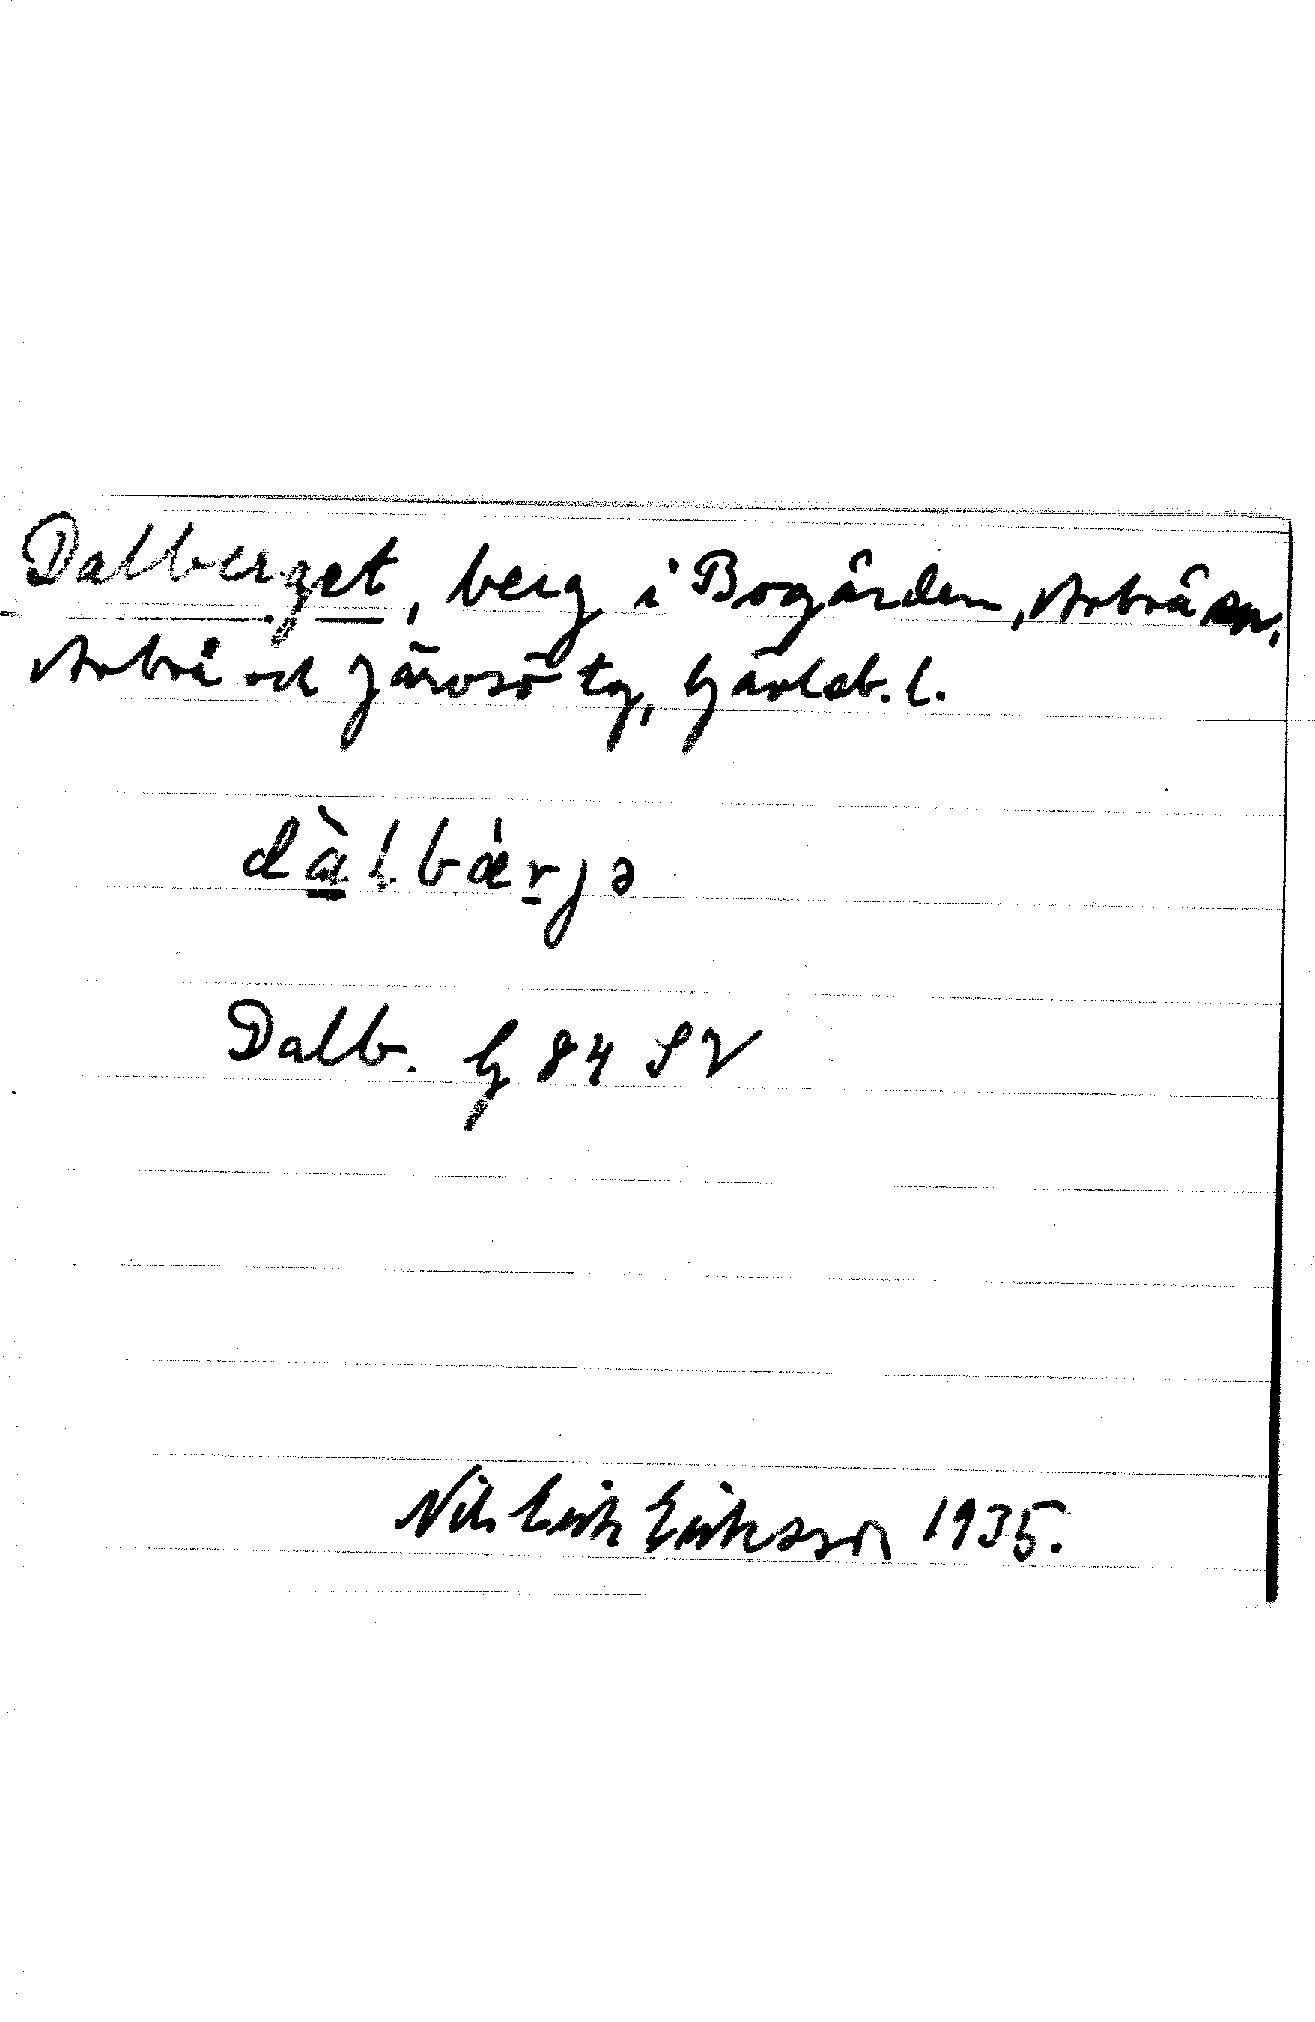 Dalberget, berg i Bogården, Arbrå sn,
Arbrå och Järvsö tg, Gävleb. l.
dàlbæ̀rjə
Dalb. G 84 SV
Nils Erik Eriksson 1935.